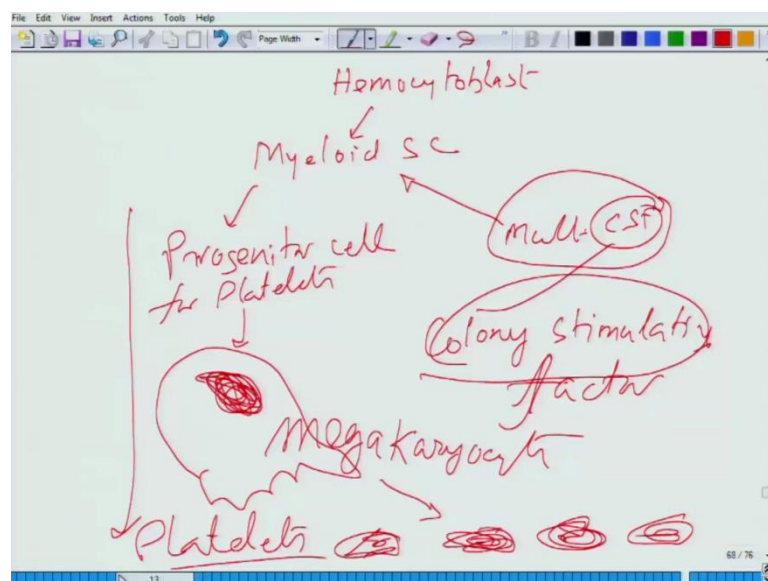 File Edit View Insert Actions Tools Help
Page Width
B I
Hemocytoblast
Myeloid SC
Multi-CSF
Progenitor cell
for Platelets
Colony stimulating
factor
Megakaryocyte
Platelets
68 / 76
13